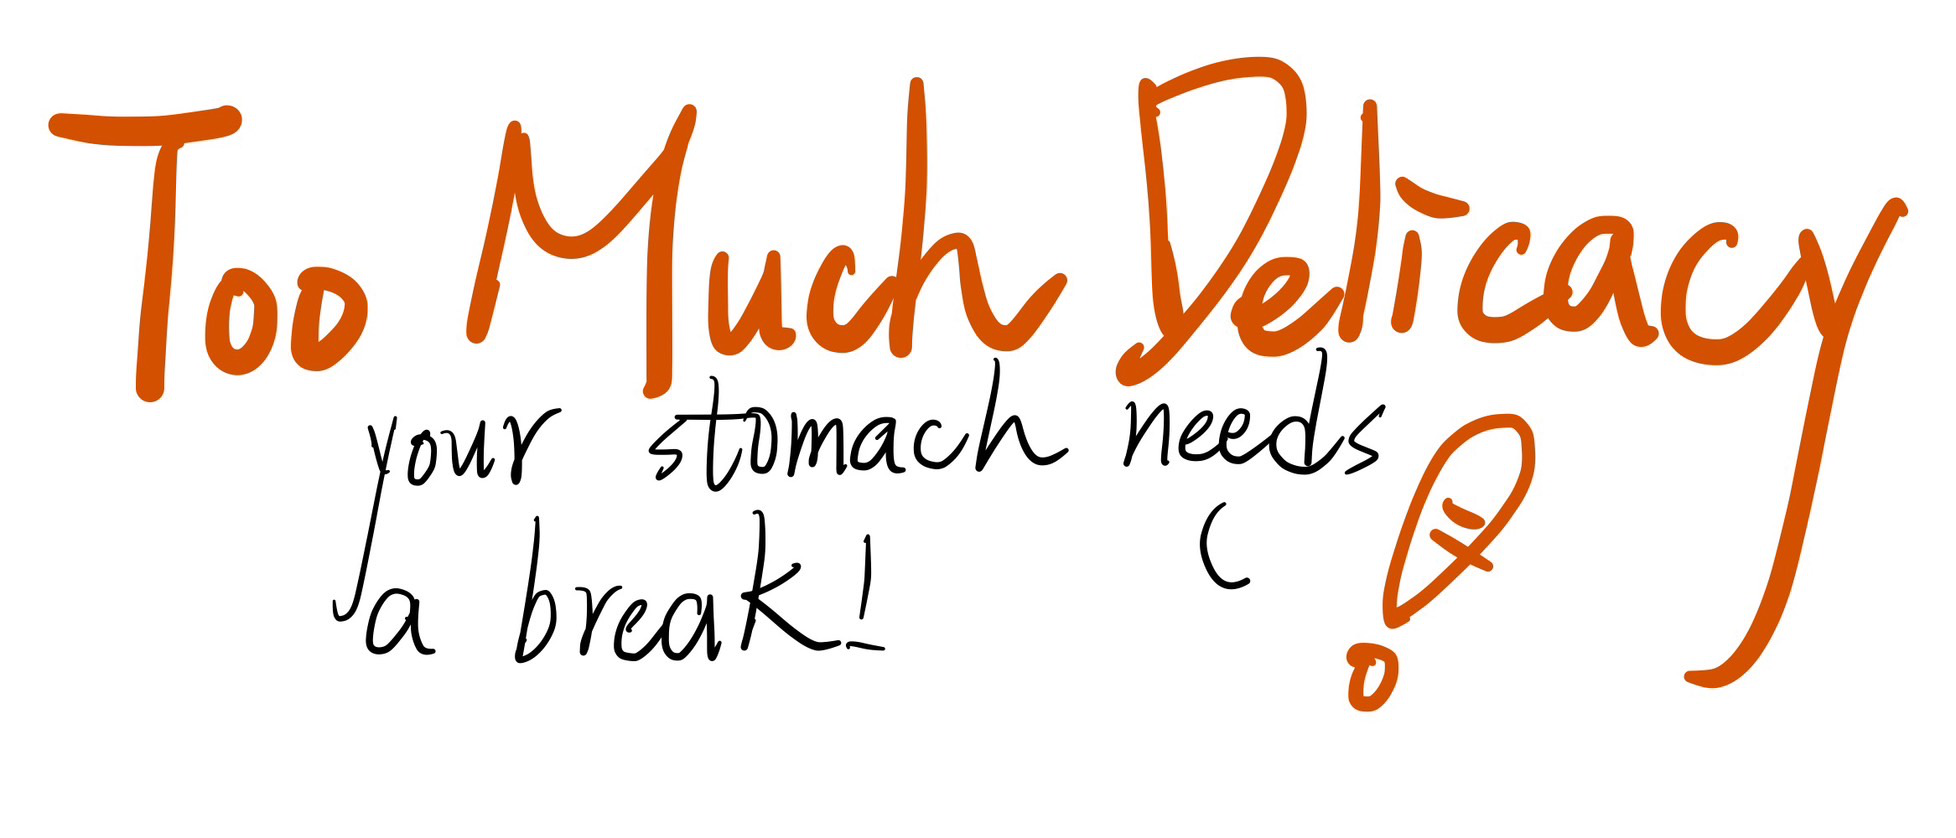 Too Much Delicacy
your stomach needs
a break!